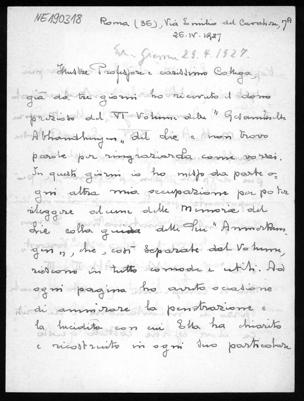 NE190318
Roma (36), Via Emilio del Cavaliere, 7A
26. IV. 1927
29.4.1927.
Illustre Professore e carissimo Collega,
già da tre giorni ho ricevuto il dono
prezioso del VI Volume delle "Gesammelte
Abhandlungen" del Lie e non trovo
parole per ringraziarLa come vorrei.
In questi giorni io ho messo da parte o-
gni altra mia occupazione per poter
rileggere alcune delle Memorie del
Lie colla guida delle Sue "Anmerkun-
gen", che, così separate dal Volume,
riescono in tutto comode e utili. Ad
ogni pagina ho avuto occasione
di ammirare la penetrazione e
la lucidità con cui Ella ha chiarito
e ricostruito in ogni suo particolare